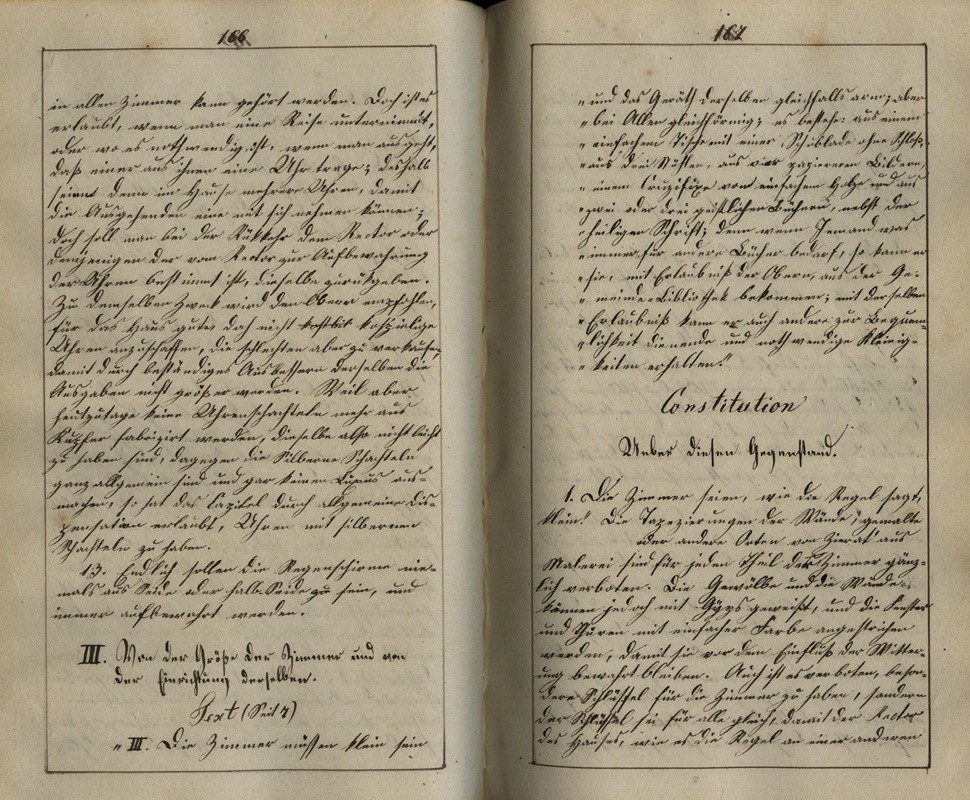 166
in allen Zimmer kann gehört werden. Doch ist es
erlaubt, wenn man eine Reise unternimmt,
oder wo es nothwendig ist, wenn man ausgeht,
daß einer aus ihnen eine Uhr trage; deshalb
seien denn im Hause mehrere Uhren, damit
die Ausgehenden eine mit sich nehmen können;
doch soll man bei der Rükkehr dem Rector oder
demjenigen der vom Rector zur Aufbewahrung
der Uhren bestimmt ist, dieselbe zurückgeben.
Zu demselben Zweck wird den Obern empfohlen,
für das Haus gute doch nicht kostbil kospielige
Uhren anzuschaffen, die schlechten aber zu verkaufen,
damit durch beständiges Ausbessern derselben die
Ausgaben nicht größer werden. Weil aber
heutzutage keine Uhrenschachteln mehr aus
Kupfer fabrizirt werden, dieselbe also nicht leicht
zu haben sind, dagegen die Silberne Schachteln
ganz allgemein sind und gar keinen Luxus aus-
machen, so hat das Capitel durch allgemeine Dis-
pensation erlaubt, Uhren mit silbernen
Schachteln zu haben.
13. Endlich sollen die Regenschirme nie-
mals aus Seide oder halb Seide zu sein, und
immer aufbewahrt werden.
III. Von der Größe der Zimmer und von
der Einrichtung derselben.
Text (Seit 7)
„ III. Die Zimmer müssen klein sein
167
„ und das Geräth derselben gleichfalls arm; aber
„ bei Allen gleichförmig; es bestehe: aus einem
„ einfachen Tische mit einer Schublade ohne Schloß,
„ aus drei Stühlen, aus vier papierenen Bildern,
„ einem Cruzifixe von einfachem Holze und aus
„ zwei oder drei geistlichen Büchern, nebst der
„ heiligen Schrift; denn wenn Jemand was
„ immer für andere Bücher bedarf, so kann er
„ sie, mit Erlaubniß der Obern, aus der Ge-
„ meinde-Bibliothek bekommen; mit derselben
„ Erlaubniß kann er auch andere zur Bequem-
„ lichkeit dienende und nothwendige Kleinig-
„ keiten erhalten."
Constitution
Ueber diesen Gegenstand.
1. Die Zimmer seien, wie die Regel sagt,
klein! Die Tapezierungen der Wände, gemalte
oder andere Arten von Zierat aus
Malerei sind für jeden Theil der Zimmer gänz-
lich verboten. Die Gewölbe und die Wände
können jedoch mit Gyps geweißt, und die Fenster
und Thüren mit einfacher Farbe angestrichen
werden, damit sie vor dem Einfluß der Witter-
ung bewahrt bleiben. Auch ist es verboten, beson-
dere Schlüssel für die Zimmer zu haben, sondern
der Schlüssel sei für alle gleich, damit der Rector
des Hauses, wie es die Regel an einer anderen